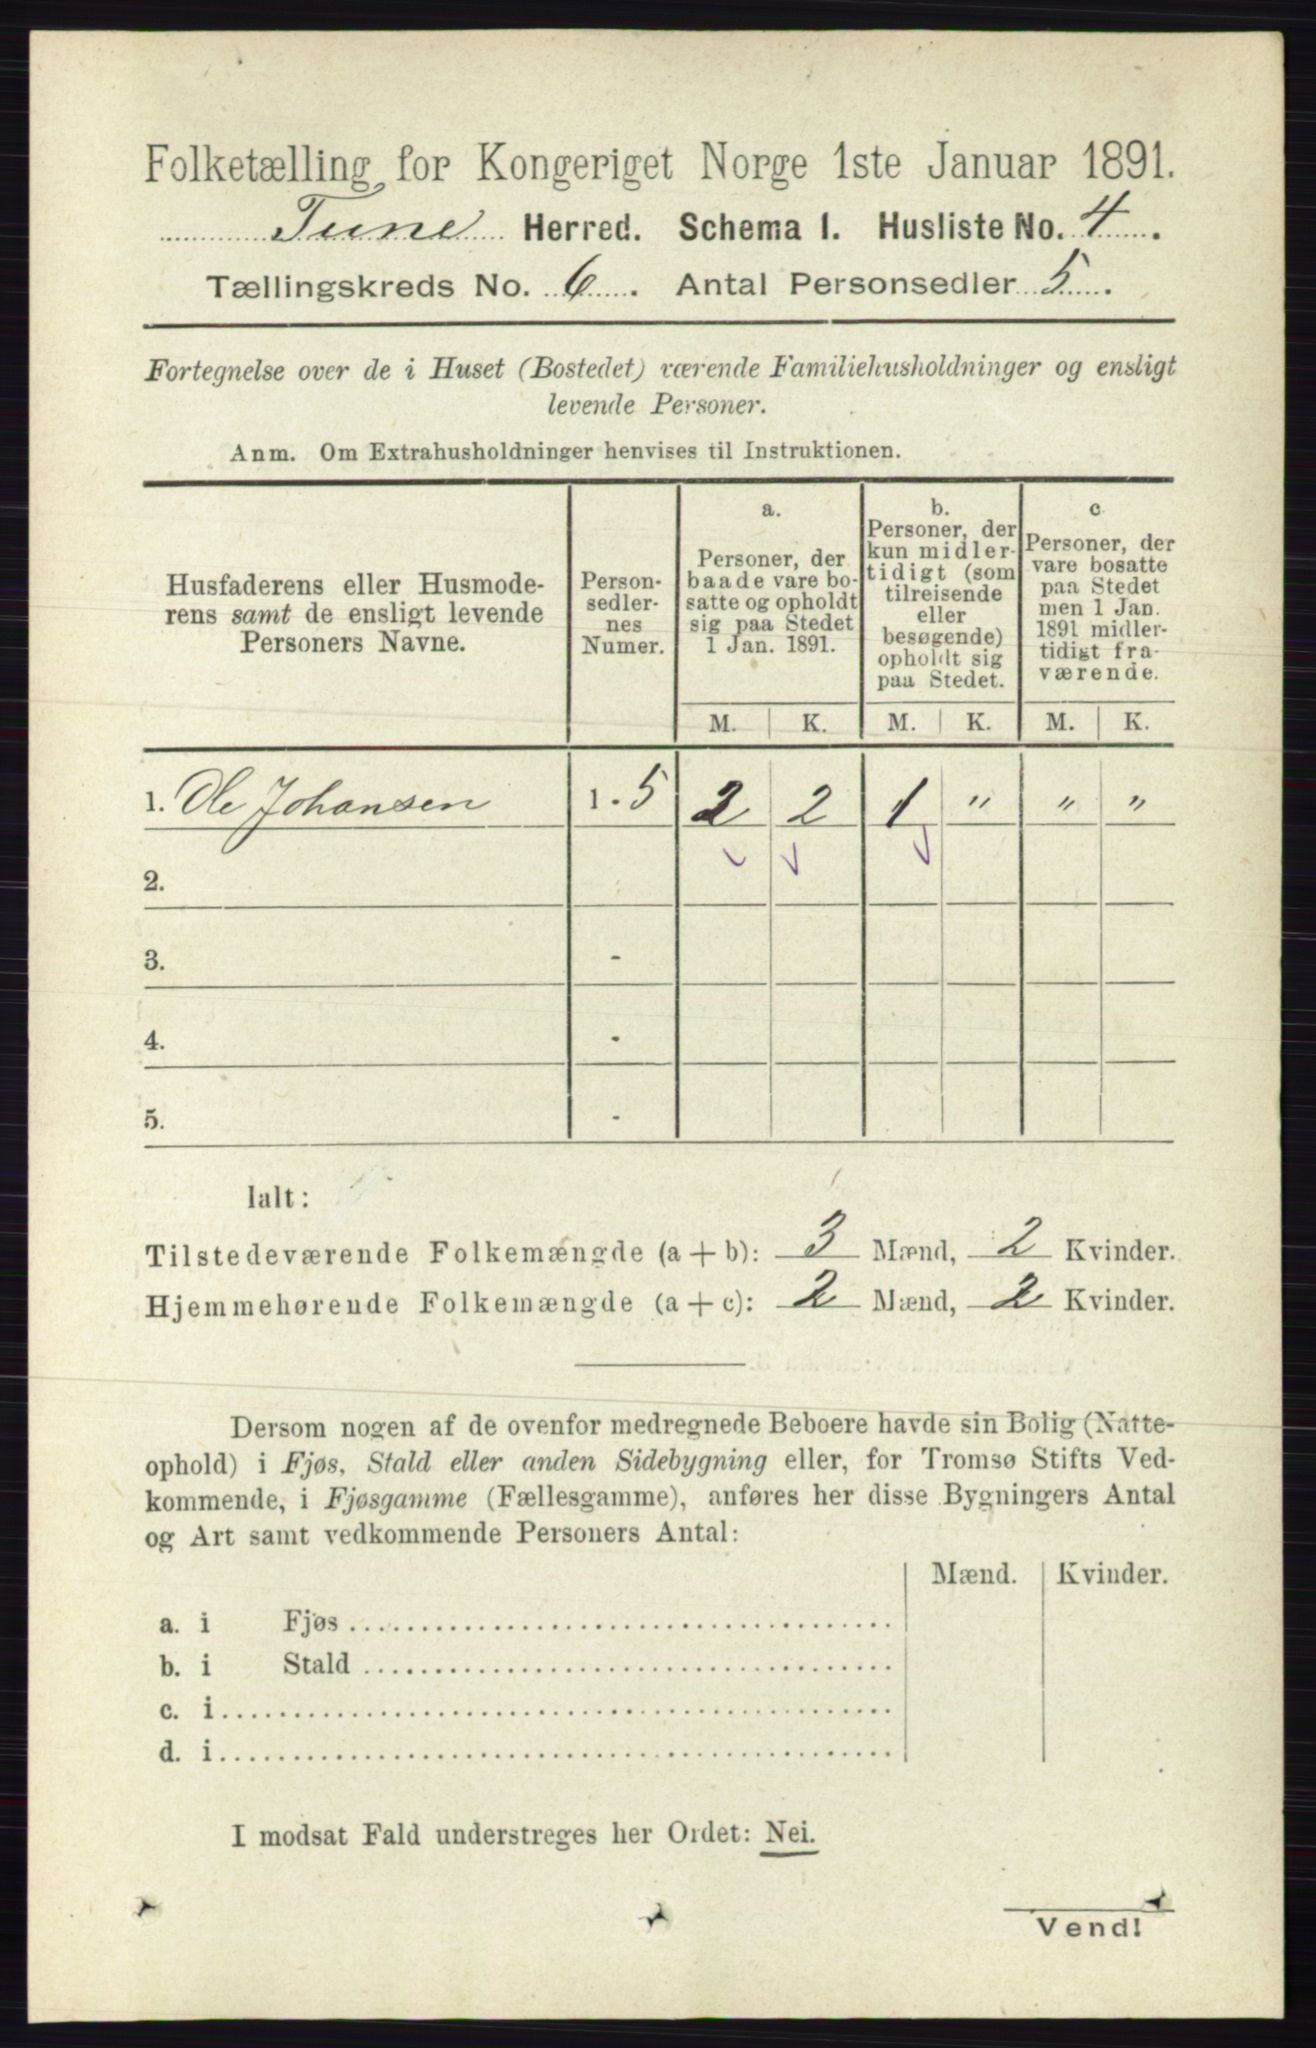 Folketælling for Kongeriget Norge 1ste Januar 1891.
Tune Herred. Schema 1. Husliste No. 4.
Tællingskreds No. 6. Antal Personsedler 5.
Fortegnelse over de i Huset (Bostedet) værende Familiehusholdninger og ensligt
levende Personer.
Anm. Om Extrahusholdninger henvises til Instruktionen.
Husfaderens eller Husmode-
rens samt de ensligt levende
Personers Navne.
Person-
sedler-
nes
Numer.
a.
Personer, der
baade vare bo-
satte og opholdt
sig paa Stedet
1 Jan. 1891.
b.
Personer, der
kun midler-
tidigt (som
tilreisende
eller
besøgende)
opholdt sig
paa Stedet.
c
Personer, der
vare bosatte
paa Stedet
men 1 Jan.
1891 midler-
tidigt fra-
værende.
M. K. M. K. M. K.
1. Ole Johansen 1 - 5 2 2 1 " " "
2.
3. -
4. -
5. -
Ialt:
Tilstedeværende Folkemængde (a + b): 3 Mænd, 2 Kvinder.
Hjemmehørende Folkemængde (a + c): 2 Mænd, 2 Kvinder.
Dersom nogen af de ovenfor medregnede Beboere havde sin Bolig (Natte-
ophold) i Fjøs, Stald eller anden Sidebygning eller, for Tromsø Stifts Ved-
kommende, i Fjøsgamme (Fællesgamme), anføres her disse Bygningers Antal
og Art samt vedkommende Personers Antal:
Mænd. Kvinder.
a. i Fjøs
b. i Stald
c. i
d. i
I modsat Fald understreges her Ordet: Nei.
Vend!